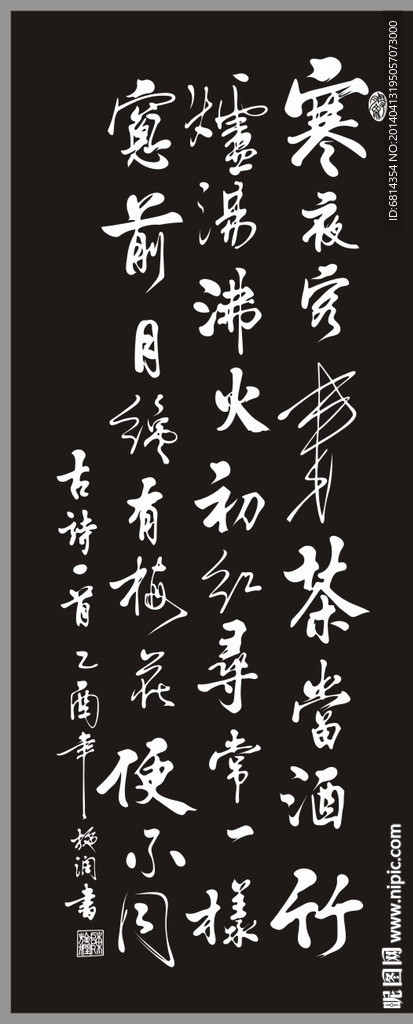 寒夜客来茶當酒竹
爐湯沸火初紅尋常一樣
窗前月纔有梅花便不同
古詩一首乙酉年施潤書
ID:6814354 NO:20140413195057073000
昵图网 www.nipic.com